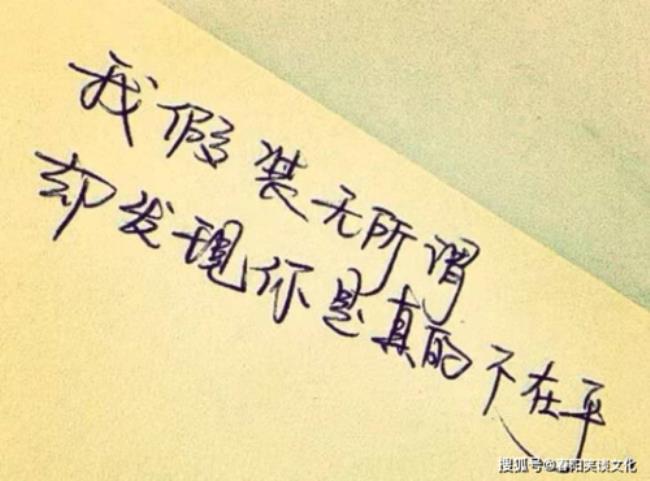 我假装无所谓
却发现你是真的不在乎
搜狐号@春阳笑谈文化